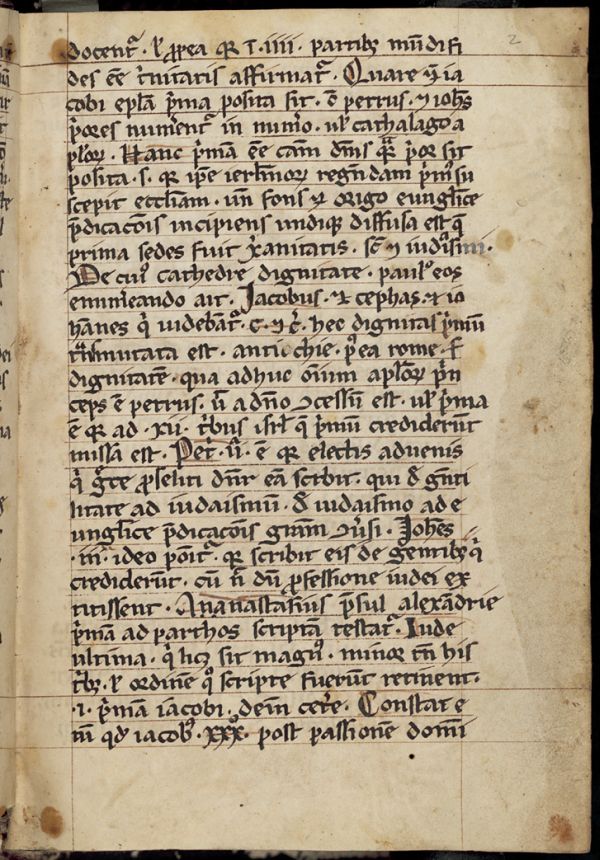 2
docent᷑. ł ꝓp̄ea qꝛ ī. iiii. partibꝫ mūdi fi
des eē t̾nitatis affirmat᷑. Quare ū ia
cobi ep̄la p̄ma posita sit. c̄ petrus. ⁊ ioh̄s
p̾ores num̾ent᷑ in num̾o. ul̓ cathalago a
pl̓oꝝ. p̄mā eē cām
posita. s. qꝛ ip̄e
scepit eccliam. un̄ fons ⁊ origo eungl̓ice
p̄dicacōis incipiens undiqꝫ diffusa est q̄
prima sedes fuit x̄anitatis. sc̄ ⁊
De cuiꝰ cathedre dignitate. paulꝰ eos
enum̾eando ait. Jacobus. ⁊ cephas. ⁊ io
hānes q̓ uideb̄ant᷑. hec dignitas p̓mū
mutata est. antiochie. p̾ea rome. ł
dignitatē. qua adhuc om̄ium apl̓oꝝ p̓n
ceps ē petrus. ū a dn̄o ꝯcessū est. ul̓ p̓ma
ē qꝛ ad. xii. t̓bus isrl̓ q̄ p̓mū crediderūt
missa est. Pet̓. ii. ē qꝛ electis aduenis
q̓ g̾ce ꝓseliti dn̄r eā scribit. qui d̄ gn̄ti
litate ad iudaismū. d̄ iudaismo ad e
ungl̓ice p̄dicacōis gr̄am ꝯū̓si. Joh̄es
.iii. ideo pōit᷑. qꝛ scribit eis de gentibꝫ q̓
crediderūt. cū n̄ dū ꝓfessione iudei ex
titissent. Ananastasius p̄sul alexandrie
p̓mā ad parthos scriptā testat᷑. Iude
ultima. q̓ licꝫ sit magnꝰ. minor tn̄ his
t̓bꝫ. ł ordine qͦ scripte fuerūt retinent.
.i. p̓mam iacobi. dein cet̾e. Constat e
nī qd̓ iacobꝰ. xxxͦ. post passionē domī